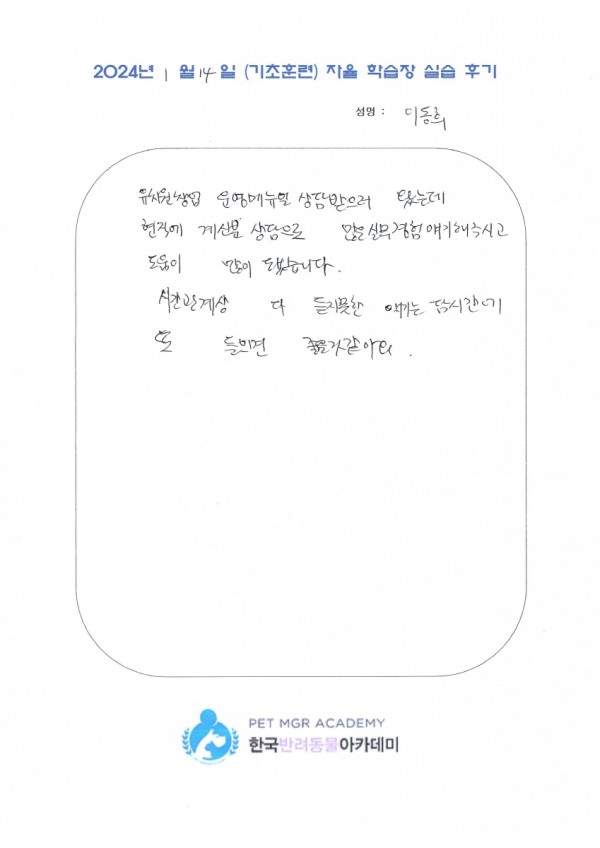 2024년 1월 14일 (기초훈련) 자율 학습장 실습 후기
성명 : 이동희
유치원창업 운영메뉴얼 상담받으러 왔는데
현직에 계신분 상담으로 많은 실무경험 얘기해주시고
도움이 많이 되었습니다.
시간관계상 다 듣지못한 얘기는 담시간에
또 들으면 좋을거같아요.
PET MGR ACADEMY
한국반려동물아카데미